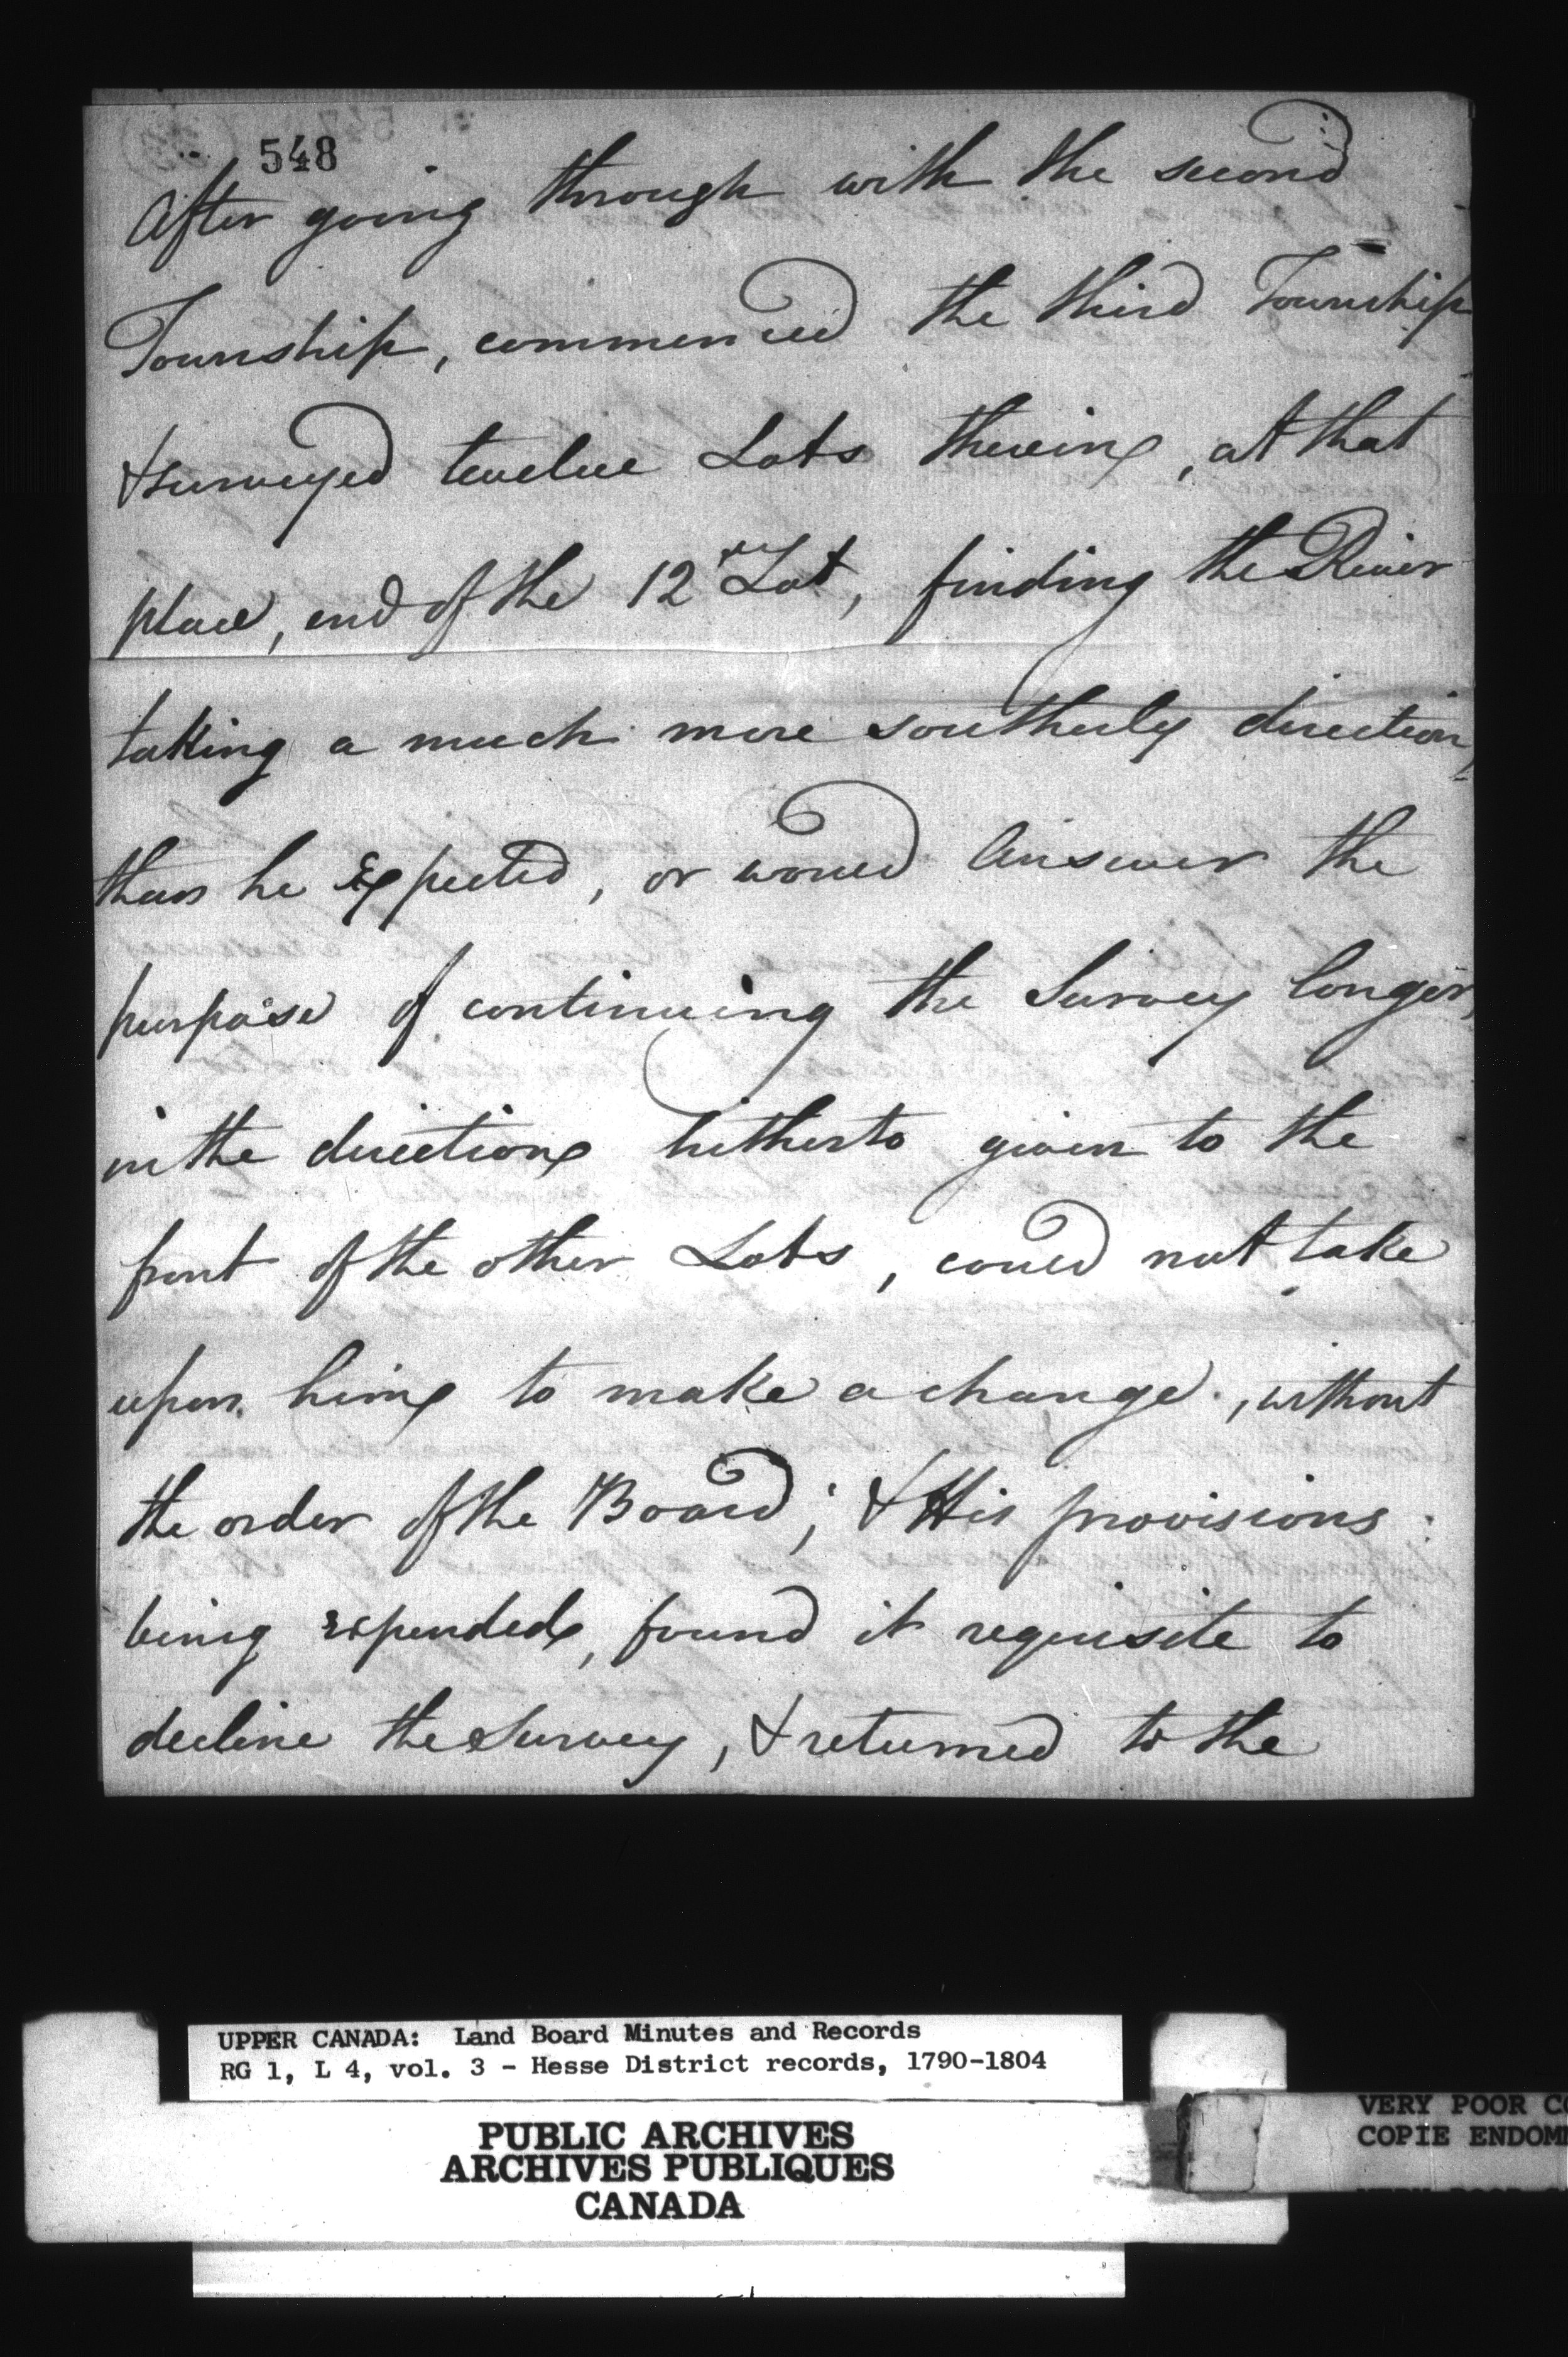 548
After going through with the second
Township, commenced the third Township
& surveyed twelve Lots therein, at that
place, end of the 12th Lot, finding the River
taking a much more southerly direction,
than he Expected, or would Answer the
purpose of continuing the Survey longer,
in the direction hitherto given to the
front of the other Lots, could not take
upon him to make a change, without
the order of the Board; & His provisions
being expended, found it requisite to
decline the Survey, & returned to the
UPPER CANADA: Land Board Minutes and Records
RG 1, L 4, vol. 3 - Hesse District records, 1790-1804
PUBLIC ARCHIVES
ARCHIVES PUBLIQUES
CANADA
VERY POOR CO
COPIE ENDOM